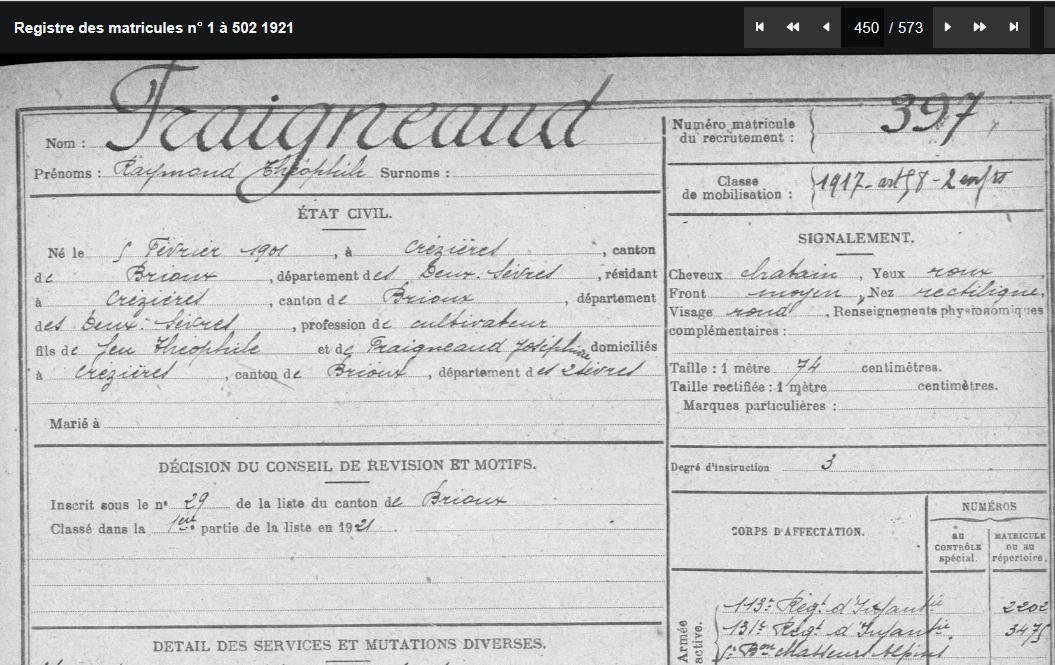 Registre des matricules n° 1 à 502 1921
450 / 573
Fraigneaud
Nom :
Prénoms : Raymond Théophile Surnoms :
Numéro matricule du recrutement : 397
Classe de mobilisation : 1917 - art 58 - 2 enfts
ÉTAT CIVIL.
Né le 5 Février 1901, à Crézières, canton
de Brioux, département des Deux-Sèvres, résidant
à Crézières, canton de Brioux, département
des Deux-Sèvres, profession de cultivateur
fils de feu Théophile et de Fraigneaud Joséphine domiciliés
à Crézières, canton de Brioux, département des 2 Sèvres
Marié à
SIGNALEMENT.
Cheveux chatain, Yeux roux,
Front moyen, Nez rectiligne,
Visage rond, Renseignements physionomiques
complémentaires :
Taille : 1 mètre 74 centimètres.
Taille rectifiée : 1 mètre centimètres.
Marques particulières :
Degré d'instruction 3
DÉCISION DU CONSEIL DE REVISION ET MOTIFS.
Inscrit sous le n° 29 de la liste du canton de Brioux
Classé dans la 1ère partie de la liste en 1921
CORPS D'AFFECTATION.
NUMÉROS
au CONTRÔLE spécial.
MATRICULE ou au répertoire.
Armée active.
113e Régt d'Infantie 2202
131e Régt d'Infantie 3475
Bon Chasseurs Alpins
DETAIL DES SERVICES ET MUTATIONS DIVERSES.